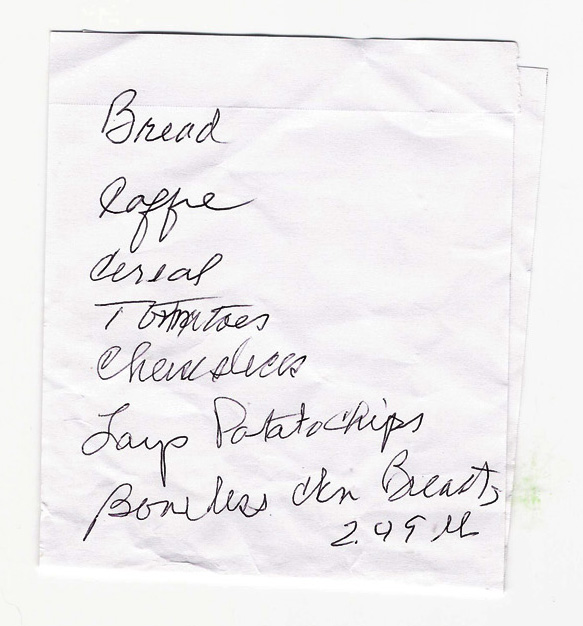 Bread
Coffee
Cereal
Tomatoes
Cheese slices
Lays Potato Chips
Boneless ckn Breasts
2.49 lb